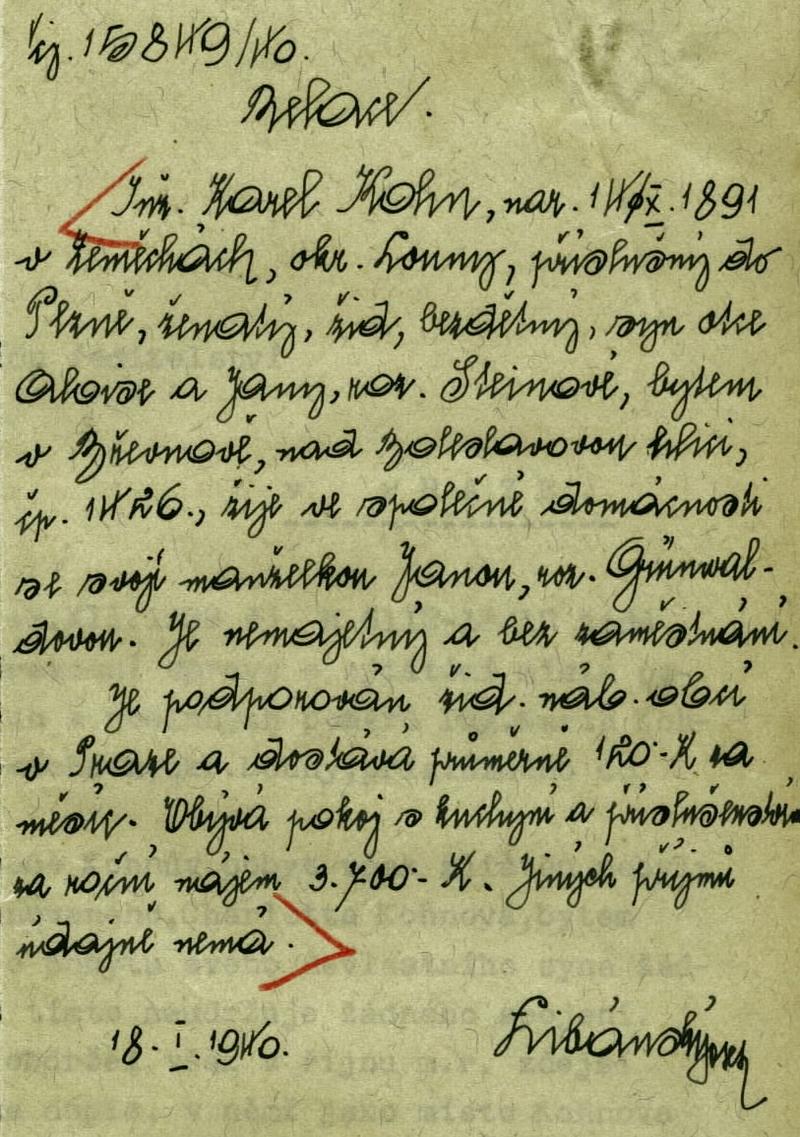 čj. 15849/40.
Relace.
Inž. Karel Kohn, nar. 14/IX. 1891
v Žeměchách, okr. Louny, příslušný do
Plzně, ženatý, žid, bezdětný, syn otce
Aloise a Jany, roz. Steinové, bytem
v Břevnově, nad Boleslavovou ulicí,
čp. 1426., žije ve společné domácnosti
se svojí manželkou Janou, roz. Grünwal-
dovou. Je nemajetný a bez zaměstnání.
Je podporován žid. náb. obcí
v Praze a dostává průměrně 120·-K za
měsíc. Obývá pokoj s kuchyní a příslušenství
za roční nájem 3.700·- K. Jiných příjmů
údajně nemá.
18. I. 1940.